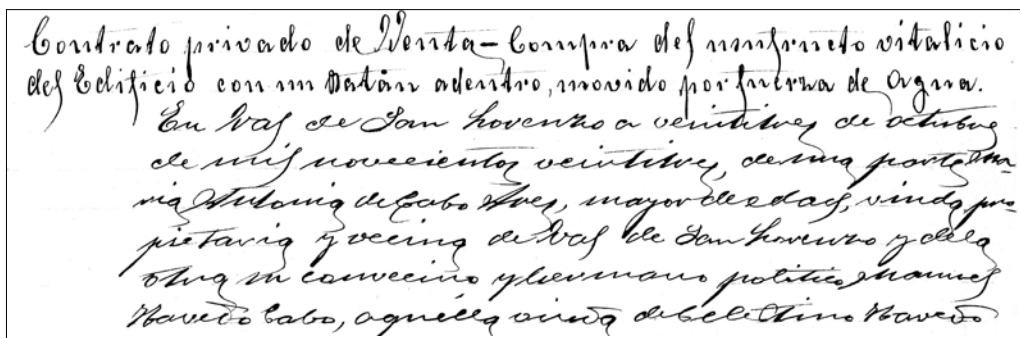 Contrato privado de Venta-Compra del usufructo vitalicio
del Edificio con un Batán adentro, movido por fuerza de agua.
En Val de San Lorenzo a veintitres de octubre
de mil novecientos veintitres, de una parte Ma-
ria Antonia de Cabo Ares, mayor de edad, viuda pro-
pietaria y vecina de Val de San Lorenzo y de la
otra su convecino y hermano politico Manuel
Navedo Cabo, aquella viuda de Celestino Navedo